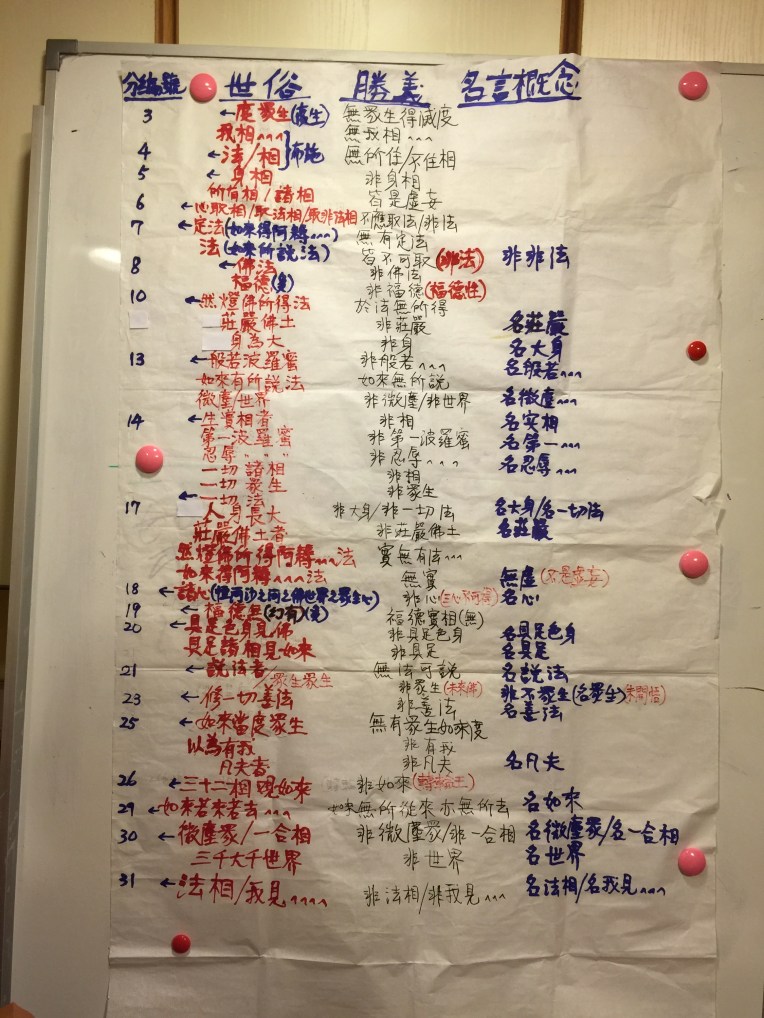 分編號 世俗 勝義 名言概念
3 ←度眾生(度生) 無眾生得滅度
我相^^^ 無我相^^^
4 ←法/相}布施 無所住/不住相
5 ←身相 非身相
所有相/諸相 皆是虛妄
6 ←心取相/取法相/取非法相 不應取法/非法
7 ←定法(如來得阿耨^^^) 無有定法
法(如來所說法) 皆不可取(非法) 非非法
8 ←佛法 非佛法
福德 非福德(福德性)
10 ←然燈佛所得法 於法無所得
莊嚴佛土 非莊嚴 名莊嚴
身為大 非身 名大身
13 ←般若波羅蜜 非般若^^^ 名般若^^^
如來有所說法 如來無所說
微塵/世界 非微塵/非世界 名微塵^^^
14 ←生實相者 非相 名實相
第一波羅蜜 非第一波羅蜜 名第一^^^
忍辱〃〃〃 非忍辱^^^ 名忍辱^^^
一切諸相 非相
一切眾生 非眾生
17 ←一切法
人身長大 非大身/非一切法 名大身/名一切法
莊嚴佛土者 非莊嚴佛土 名莊嚴
然燈佛所得阿耨^^^法 實無有法^^^
如來得阿耨^^^法 無實 無虛(不是虛妄)
18 ←諸心(恒河沙之沙之佛世界之眾生心) 非心(三心不可得) 名心
19 ←福德無(幻有) 福德實相(無)
20 ←具足色身見佛 非具足色身 名具足色身
具足諸相見如來 非具足 名具足
21 ←說法者 無法可說 名說法
眾生眾生 非眾生(未來佛) 非不眾生(名眾生)未開悟
23 ←修一切善法 非善法 名善法
25 ←如來當度眾生 無有眾生如來度
以為有我 非有我
凡夫者 非凡夫 名凡夫
26 ←三十二相觀如來 非如來(轉輪王)
29 ←如來若來若去^^^ 如來無所從來亦無所去 名如來
30 ←微塵眾/一合相 非微塵眾/非一合相 名微塵眾/名一合相
三千大千世界 非世界 名世界
31 ←法相/我見^^^^ 非法相/非我見^^^ 名法相/名我見^^^